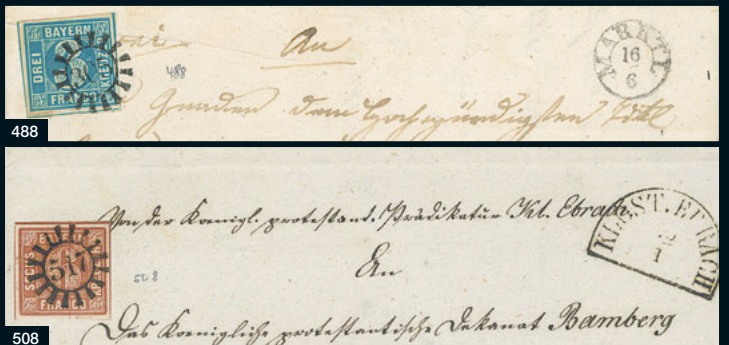 BAYERN
DREI
KREUZER
FRANCO
488
An
MARKTL
16
6
Gnaden dem Hochwürdigsten Titl
488
Von der Koenigl. protestant. Prädikatur Kl. Ebrach
KLOST. EBRACH
1
SECHS
FRANCO
517
508
An
Das Koenigliche protestantische Dekanat Bamberg
508